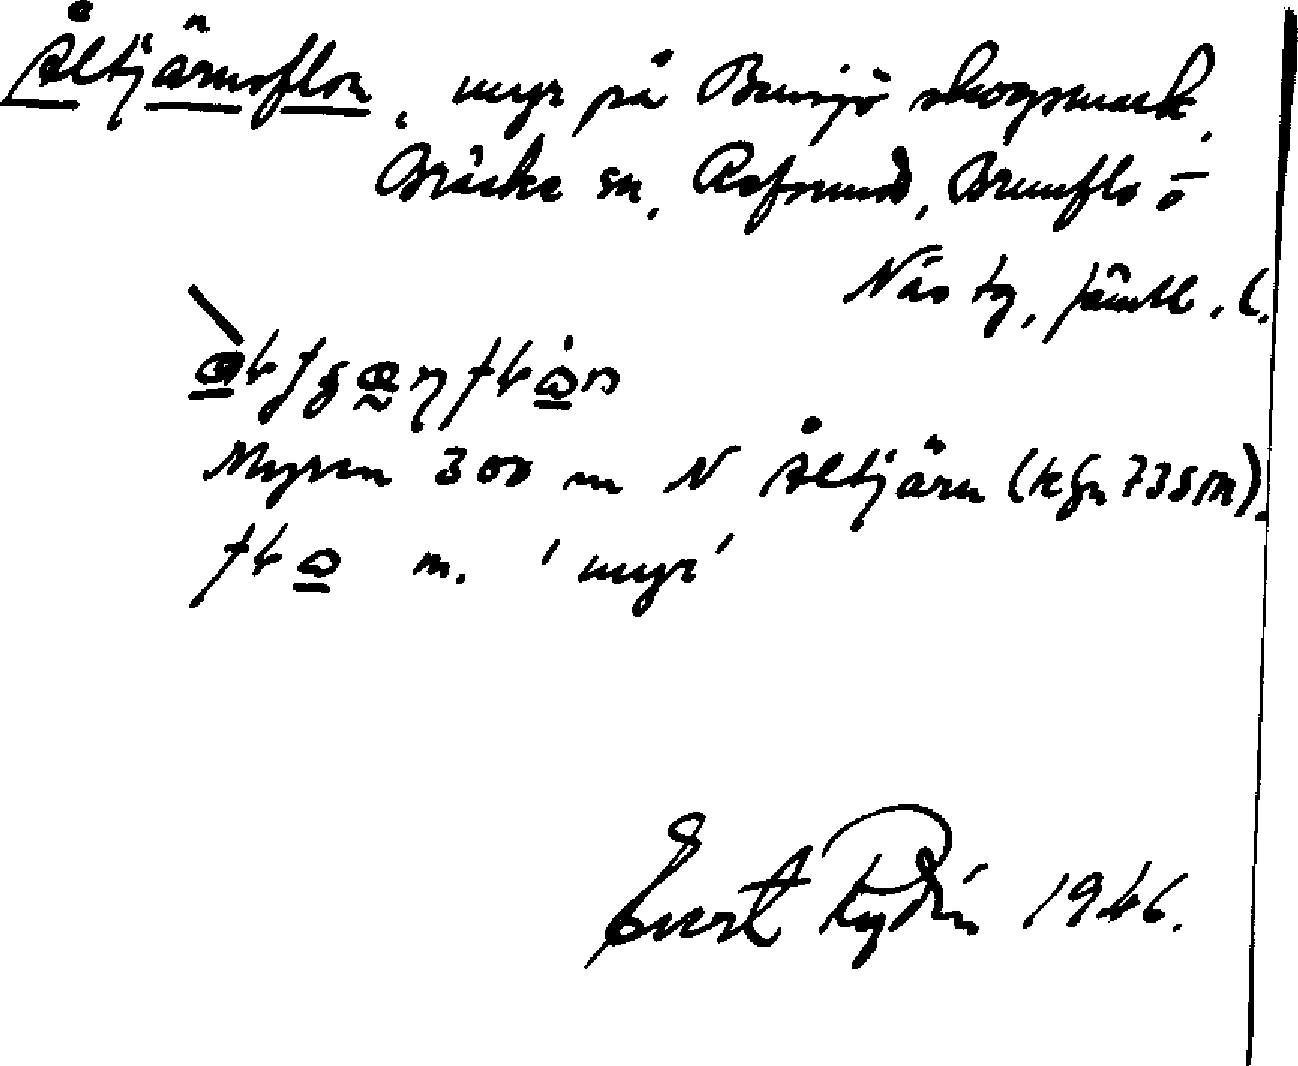 Åltjärnsflon, myr på Bensjö skogsmark,
Bräcke sn, Refsund, Brunflo o
Näs tg, Jämtl. l.
Myren 300 m N Åltjärn (kfn 735 m).
m. 'myr'
Evert Rydén 1946.